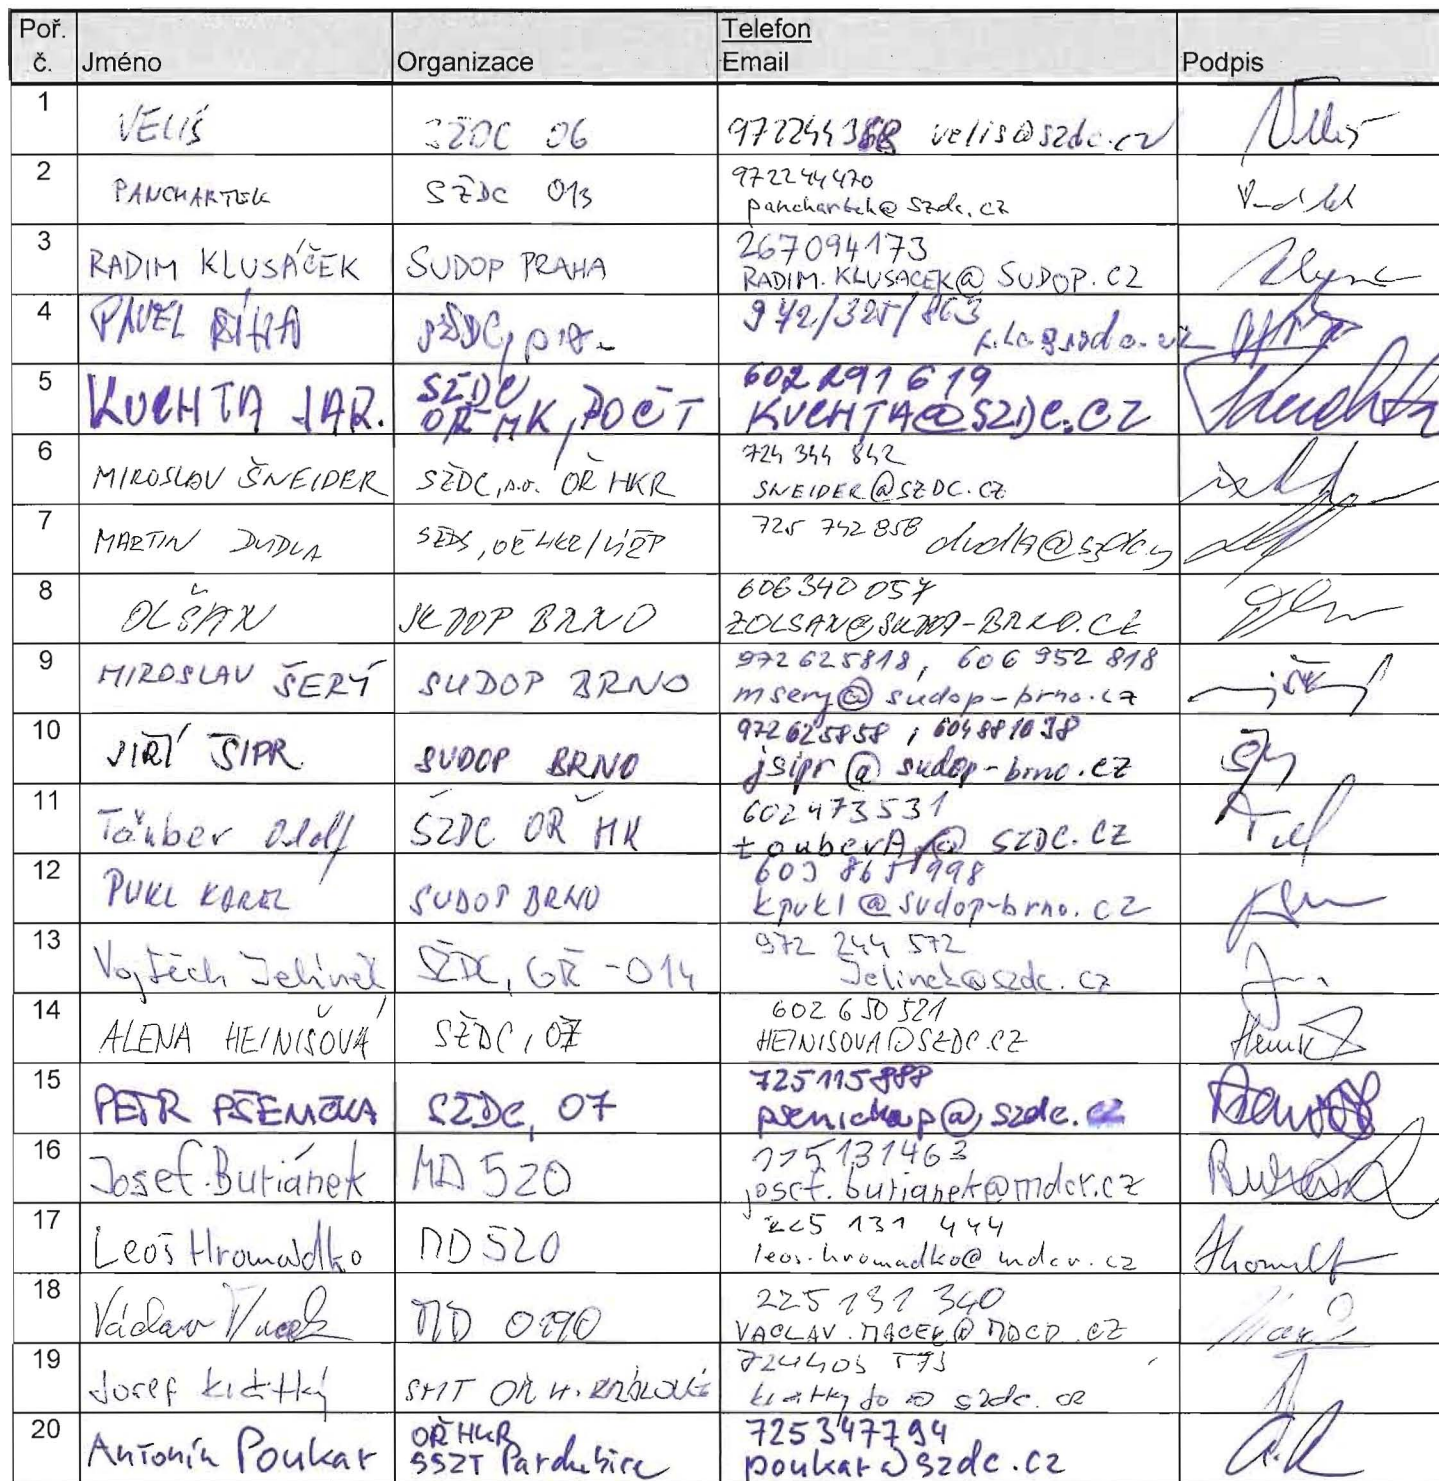 Poř. č. Jméno Organizace Telefon Email Podpis
1 VELIŠ SŽDC 06 972244368 velis@szdc.cz
2 PANCHARTEK SŽDC 013 972244470
panchartek@szdc.cz
3 RADIM KLUSÁČEK SUDOP PRAHA 267094173
RADIM.KLUSACEK@SUDOP.CZ
4 PAVEL ŘÍHA SŽDC, 972/325/863
5 KUCHTA JAR. SŽDC OŘ HK, POČT 602 291 619
KUCHTA@SZDC.CZ
6 MIROSLAV ŠNEIDER SŽDC, s.o. OŘ HKR 724 344 842
SNEIDER@SZDC.CZ
7 MARTIN DUDLA SŽDC, OŘ HKR 725 742 858
8 OLŠAN SUDOP BRNO 606340057
ZOLSAN@SUDOP-BRNO.CZ
9 MIROSLAV ŠERÝ SUDOP BRNO 972625818, 606 952 818
msery@sudop-brno.cz
10 JIŘÍ ŠIPR SUDOP BRNO 972625858, 604881038
jsipr@sudop-brno.cz
11 Täuber Adolf SŽDC OŘ HK 602473531
tauberA@SZDC.CZ
12 PUKL KAREL SUDOP BRNO 603 865 998
kpukl@sudop-brno.cz
13 Vojtěch Jelínek SŽDC, GŘ-O14 972 244 572
Jelinek@szdc.cz
14 ALENA HEINIŠOVÁ SŽDC, 07 602 650 521
HEINISOVA@SZDC.CZ
15 PETR PŠENIČKA SŽDC, 07 725115888
psenickap@szdc.cz
16 Josef Buriánek MD 520 225131463
josef.burianek@mdcr.cz
17 Leoš Hromádko MD 520 225 131 444
leos.hromadko@mdcr.cz
18 Václav Macek MD 0190 225 131 340
VACLAV.MACEK@MDCR.CZ
19 Josef Krátký SMT OŘ H. KRÁLOVÉ 724403
szdc.cz
20 Antonín Poukar OŘ HKR 725347794
SSZT Pardubice poukar@szdc.cz